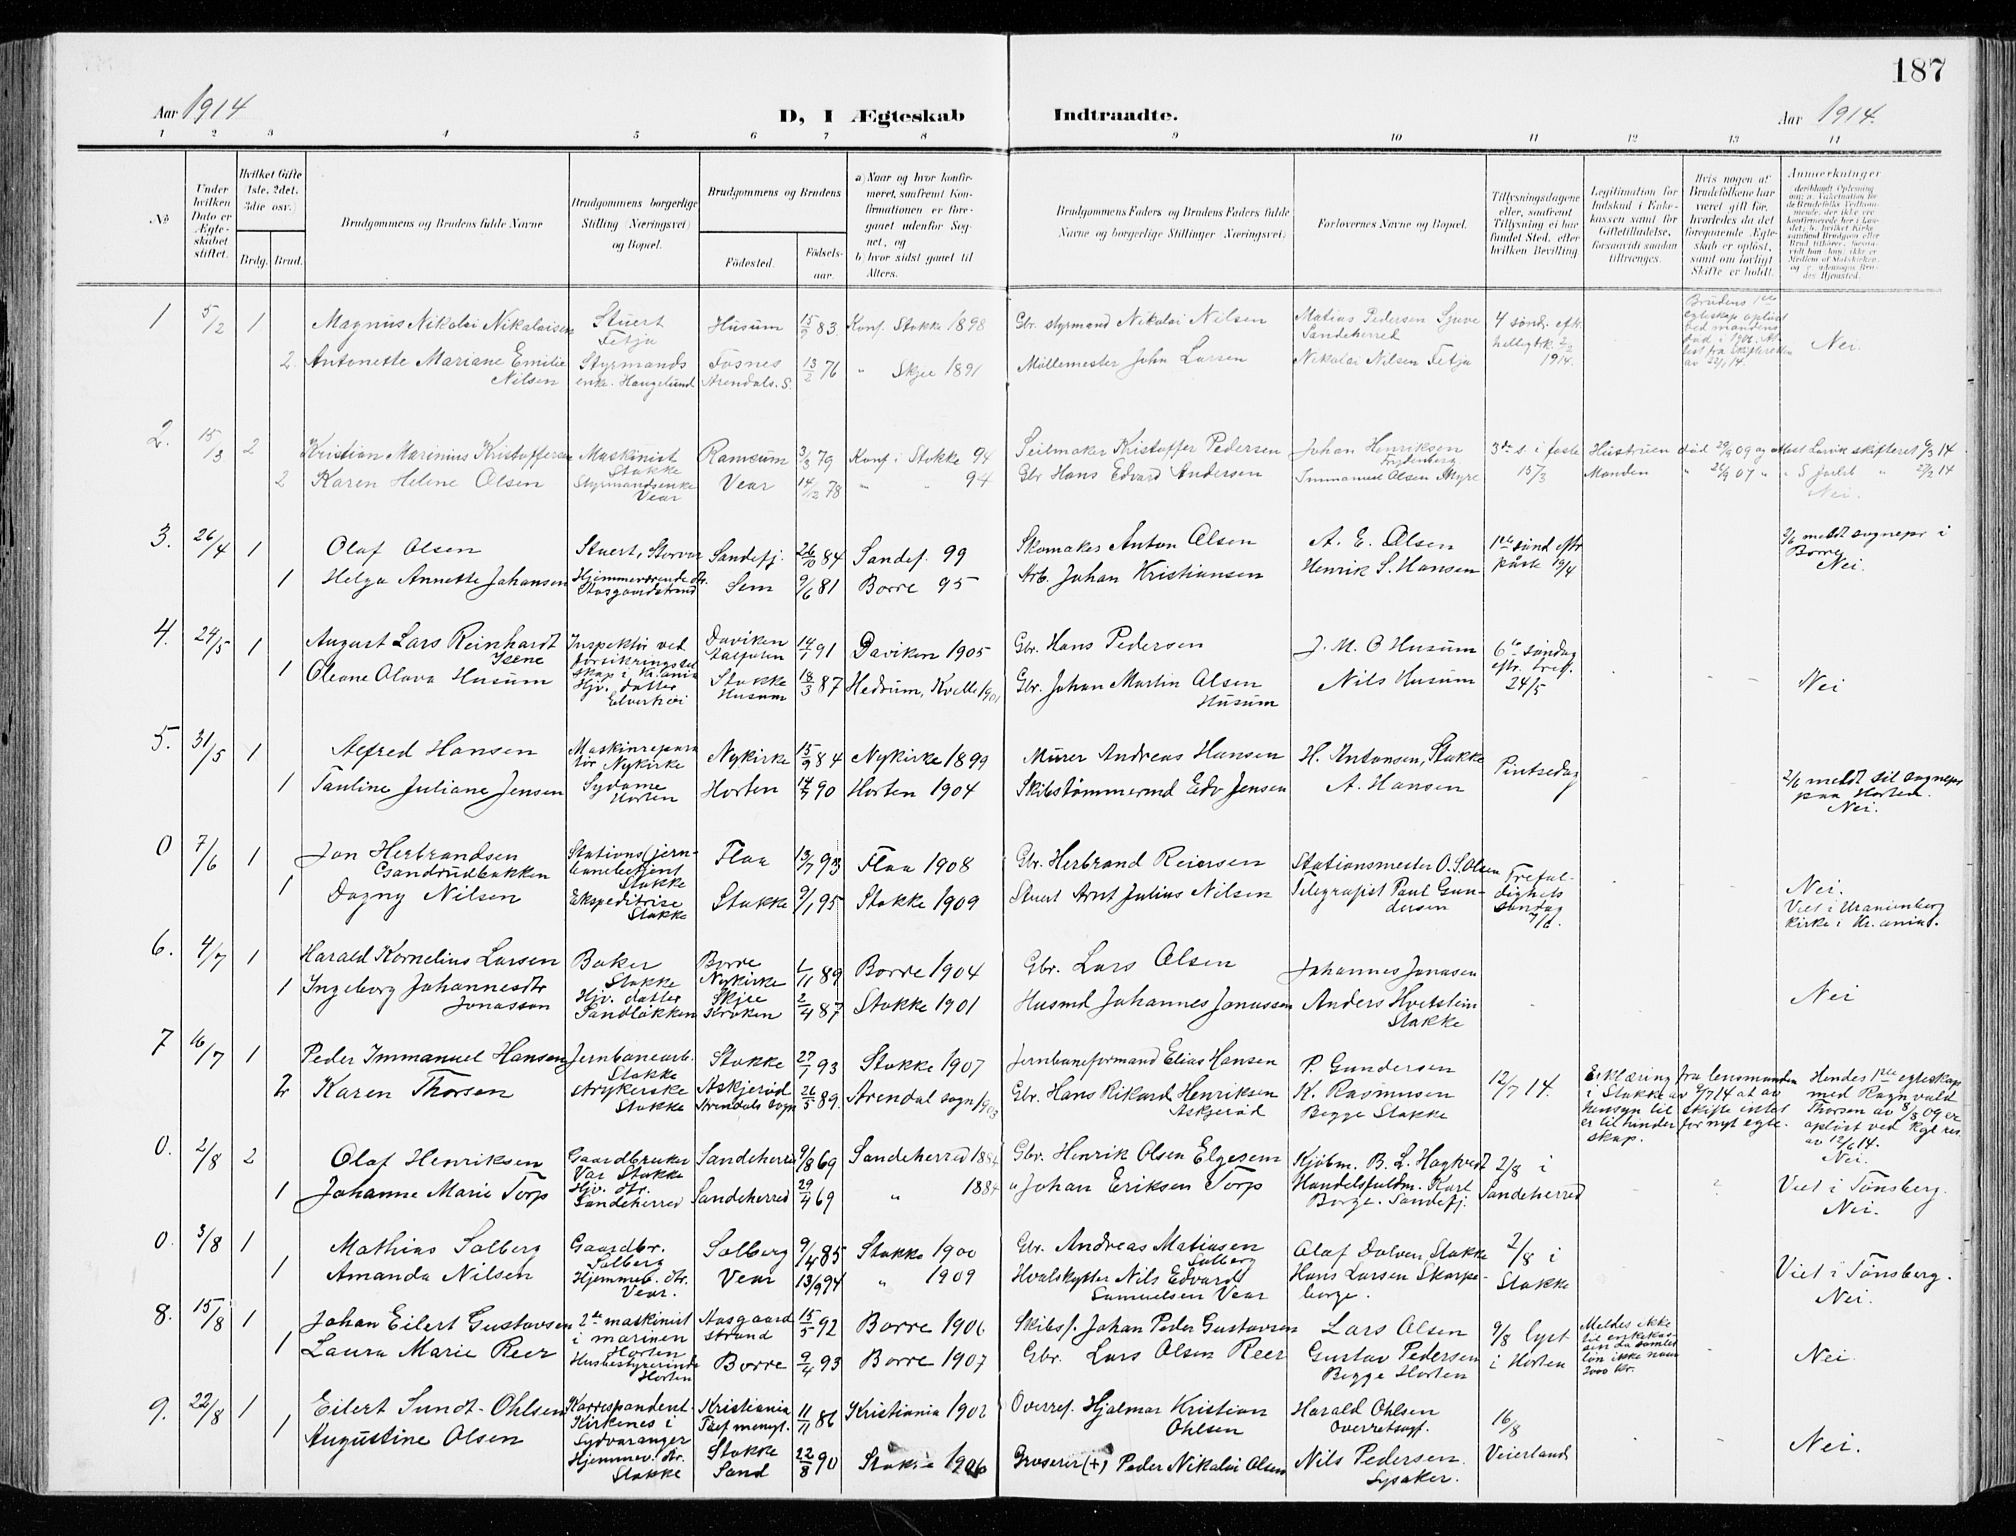 187
Aar 1914
D, I Ægteskab Indtraadte.
Aar 1914.
1 2 3 4 5 6 7 8 9 10 11 12 13 14
No
Under hvilken Dato er Ægteskabet stiftet.
Hvilket Gifte 1ste, 2det, 3die osv.)
Brdg. Brud.
Brudgommens og Brudens fulde Navne
Brudgommens borgerlige Stilling (Næringsvei) og Bopæl.
Brudgommens og Brudens
Fødested.
Fødselsaar.
a) Naar og hvor konfirmeret, saafremt Konfirmationen er foregaaet udenfor Sognet, og
b) hvor sidst gaaet til Alters.
Brudgommens Faders og Brudens Faders fulde Navne og borgerlige Stillinger (Næringsvei)
Forlovernes Navne og Bopæl.
Tillysningsdagene eller, saafremt Tillysning ei har fundet Sted, efter hvilken Bevilling
Legitimation for Indskud i Enkekassen samt for Giftetilladelse, forsaavidt saadan tiltrænges.
Hvis nogen af Brudefolkene har været gift før, hvorledes da det foregaaende Ægteskab er opløst, samt om lovligt Skifte er holdt.
Anmærkninger
1 5/2 1 Magnus Nikolai Nikolaisen Stuert Fetja Husum 15/2 83 Konf. Stokke 1898 Gbr. styrmand Nikolai Nilsen Matias Pedersen Sjuve Sandeherred 4 sønd. eftr. helligtrk. 2/2 1914. Brudens 1ste egteskap opløst ved mandens død i 1902. Attest fra skifteretten av 22/1 14. Nei.
2. Antonette Mariane Emilie Nilsen Styrmands enke. Haugelund Fosnes Arendals. S. 13/2 76 " Skjee 1891 Møllemester John Larsen Nikolai Nilsen Fetja
2. 15/3 2 Kristian Marinius Kristoffersen Maskinist Stokke Ramsum 3/3 79 Konf i Stokke 94 Seilmaker Kristoffer Pedersen Johan Henriksen Frydenberg 3die s. i faste 15/3 Hustruen død 29/9 09 og Attest Larvik skifteret 6/3 14
2 Karen Helene Olsen Styrmandsenke Vear Vear 14/12 78 " " 94 Gbr Hans Edvard Andersen Immanuel Olsen Myre Manden " 26/9 07 " " S Jarlsb " 27/2 14 Nei.
3. 26/4 1 Olaf Olsen Stuert, Storvar Sandefj. 26/10 84 Sandef. 99 Skomaker Anton Olsen A. E. Olsen 1ste sønd eftr påske 19/4 2/6 meldt sognepr i Borre Nei.
1 Helga Annette Johansen Hjemmeværende dtr. Aasgaardstrand Sem 9/6 81 Borre 95 Arb. Johan Kristiansen Henrik S. Hansen
4. 24/5 1 August Lars Reinhardt Isene Inspektør ved forsikringsselskap i Kr.ania Daviken 14/1 91 Daviken 1905 Gbr. Hans Pedersen J. M. O Husum 6te søndag eftr. 24/5
1 Oleane Olava Husum Hjv. datter Elverhøi Stokke Husum 18/3 87 Hedrum, Kvelle 1901 Gbr. Johan Martin Olsen Husum Nils Husum Nei
5. 31/5 1 Alfred Hansen Maskinreparatør Nykirke Nykirke 15/9 84 Nykirke 1899 Murer Andreas Hansen H. Antonsen, Stokke Pintsedag
1 Pauline Juliane Jensen Sydame Horten Horten 14/7 90 Horten 1904 Skibstømmermd Edv Jensen A. Hansen 2/6 meldt til sognepr paa Horten. Nei.
0 7/6 1 Jon Herbrandsen Gandrudbakken Stations(jernbanebetjent Stokke Flaa 13/7 93 Flaa 1908 Gbr. Herbrand Reiersen Stationsmester O. S. Olsen Trefoldighets søndag 7/6.
1 Dagny Nilsen Ekspeditrise Stokke Stokke 9/1 95 Stokke 1909 Stuert Arnt Julius Nilsen Telegrafist Paul Gundersen Nei. Viet i Uranienborg kirke i Kr.ania.
6. 4/7 1 Harald Kornelius Larsen Baker Stokke Borre Nykirke 1/11 89 Borre 1904 Gbr. Lars Olsen Johannes Jonasen
1 Ingeborg Johannesdtr Jonasson Hjv. datter Sandløkken Skjee Kroken 2/4 87 Stokke 1901 Husmd Johannes Jonassen Anders Hvetstein Stokke Nei
7 16/7 1 Peder Immanuel Hansen Jernbanearb. Stokke Stokke 27/1 93 Stokke 1907 Jernbaneformand Elias Hansen P. Gundersen 12/7 14.
2 Karen Thorsen Strykerske Stokke Askjerød Arendals sogn 26/5 89. Arendal sogn 1903 Gbr. Hans Rikard Henriksen Askjerød K. Rasmusen Begge Stokke Erklæring fra lensmanden i Stokke av 9/7 14 at av hensyn til skifte intet er til hinder for nyt egteskap. Hendes 1ste egteskap med Ragnvald Thorsen av 8/8 09 er opløst ved kgl res av 12/6 14. Nei.
0. 2/8 2 Olaf Henriksen Gaardbruker Var Stokke Sandeherred 9/8 69 Sandeherred 1884 Gbr. Henrik Olsen Elgesem Kjøbm. B. L. Hagtvedt 2/8 i Sandeherred
1 Johanne Marie Torp Hjv. dtr. Sandeherred Sandeherred 29/4 69 " 1884 " Johan Eriksen Torp Handelsfuldm. Karl Borge. Sandefj. Viet i Tønsberg. Nei.
0. 3/8 1 Mathias Solberg Gaardbr. Solberg Solberg 9/4 85 Stokke 1900 Gbr. Andreas Matiasen Solberg Olaf Dalven Stokke 2/8 i Stokke
1 Amanda Nilsen Hjemmev. dtr. Vear. Vear 13/9 94 " 1909 Hvalskytter Nils Edvard Samuelsen Vear Hans Larsen Skorpeborge. Viet i Tønsberg. Nei.
8. 15/8 1 Johan Eilert Gustavsen 2den maskinist i marinen Horten Aasgaardstrand 15/5 92 Borre 1906 Skibsf. Johan Peder Gustavsen Lars Olsen 9/8 lyst i Horten Meldes ikke til enkekassen da samlet løn ikke naar 2000 kr.
1 Laura Marie Reer Husbestyrerinde Horten Borre 9/4 93 Borre 1907 Gbr. Lars Olsen Reer Gustav Pedersen Begge Horten Nei.
9. 22/8 1 Eilert Sundt-Ohlsen Korrespondent Kirkenes i Sydvaranger Kristiania 11/11 86 Kristiania 1902 Overref. Hjalmar Kristian Ohlsen Harald Ohlsen Overretssagf. 16/8 Veierland
1 Augustine Olsen Hjemmev. dtr. Stokke Stokke Sand 22/8 90 Stokke 1906 Grosserer (+) Peder Nikolai Olsen Nils Pedersen Lysaker. Nei.